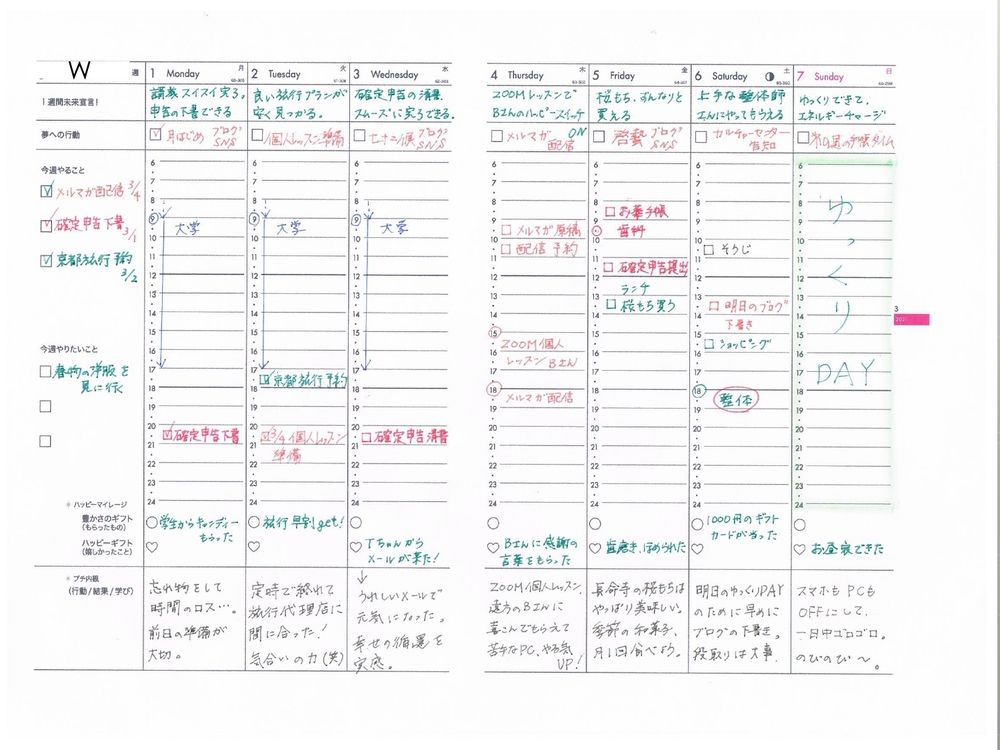 W 週
1週間未来宣言!
夢への行動
今週やること
メルマガ配信 3/4
確定申告下書 3/1
京都旅行予約 3/2
今週やりたいこと
春物の洋服を
見に行く
＊ハッピーマイレージ
豊かさのギフト
(もらったもの)
ハッピーギフト
(嬉しかったこと)
＊プチ内観
(行動/結果/学び)
1 Monday 月
講義スイスイ実る。
申告の下書できる
耳はじめ ブログ
SNS
6
7
8
9 大学
10
11
12
13
14
15
16
17
18
19
20
確定申告下書
21
22
23
24
学生からキャンディー
もらった
忘れ物をして
時間のロス…。
前日の準備が
大切。
2 Tuesday 火
良い旅行プランが
安く見つかる。
個人レッスン準備
6
7
8
9 大学
10
11
12
13
14
15
16
17
京都旅行予約
18
19
20
3/4個人レッスン
21
準備
22
23
24
旅行早割get!
定時で終れて
旅行代理店に
間に合った!
気合いの力(笑)
3 Wednesday 水
確定申告の清書、
スムーズに実うできる。
七十二候 ブログ
SNS
6
7
8
9 大学
10
11
12
13
14
15
16
17
18
19
20
確定申告清書
21
22
23
24
Tちゃんから
メールが来た!
うれしいメールで
元気になった。
幸せの循還を
実感。
4 Thursday 木
ZOOMレッスンで
Bさんのハッピースイッチ
ON
メルマガ
配信
6
7
8
9
メルマガ原稿
10
配信予約
11
12
13
14
15
ZOOM個人
16
レッスンBさん
17
18
メルマガ配信
19
20
21
22
23
24
Bさんに感謝の
言葉をもらった
ZOOM個人レッスン。
遠方のBさんに
喜こんでもらえて
苦手なPC、やる気
UP!
5 Friday 金
桜もち、すんなりと
買える
啓蟄 ブログ
SNS
6
7
8
お華手帳
9
歯科
10
11
確定申告提出
12
ランチ
13
桜もち買う
14
15
16
17
18
19
20
21
22
23
24
歯磨き、ほめられた
長命寺の桜もちは
やっぱり美味しい。
季節の和菓子、
月1回食べよう。
6 Saturday 土
上手な整体師
さんにやってもらえる
カルチャーセンター
告知
6
7
8
9
10
そうじ
11
12
13
明日のブログ
14
下書き
15
ショッピング
16
17
18 整体
19
20
21
22
23
24
1000円のギフト
カードが当った
明日のゆっくりDAY
のために早めに
ブログの下書き。
段取りは大事。
7 Sunday 日
ゆっくりできて、
エネルギーチャージ
6
7
8
9
10
11
12
13
14
15
16
17
18
19
20
21
22
23
24
ゆっくり
DAY
お昼寝できた
スマホもPCも
OFFにして、
一日中ゴロゴロ。
のびのび〜。
3